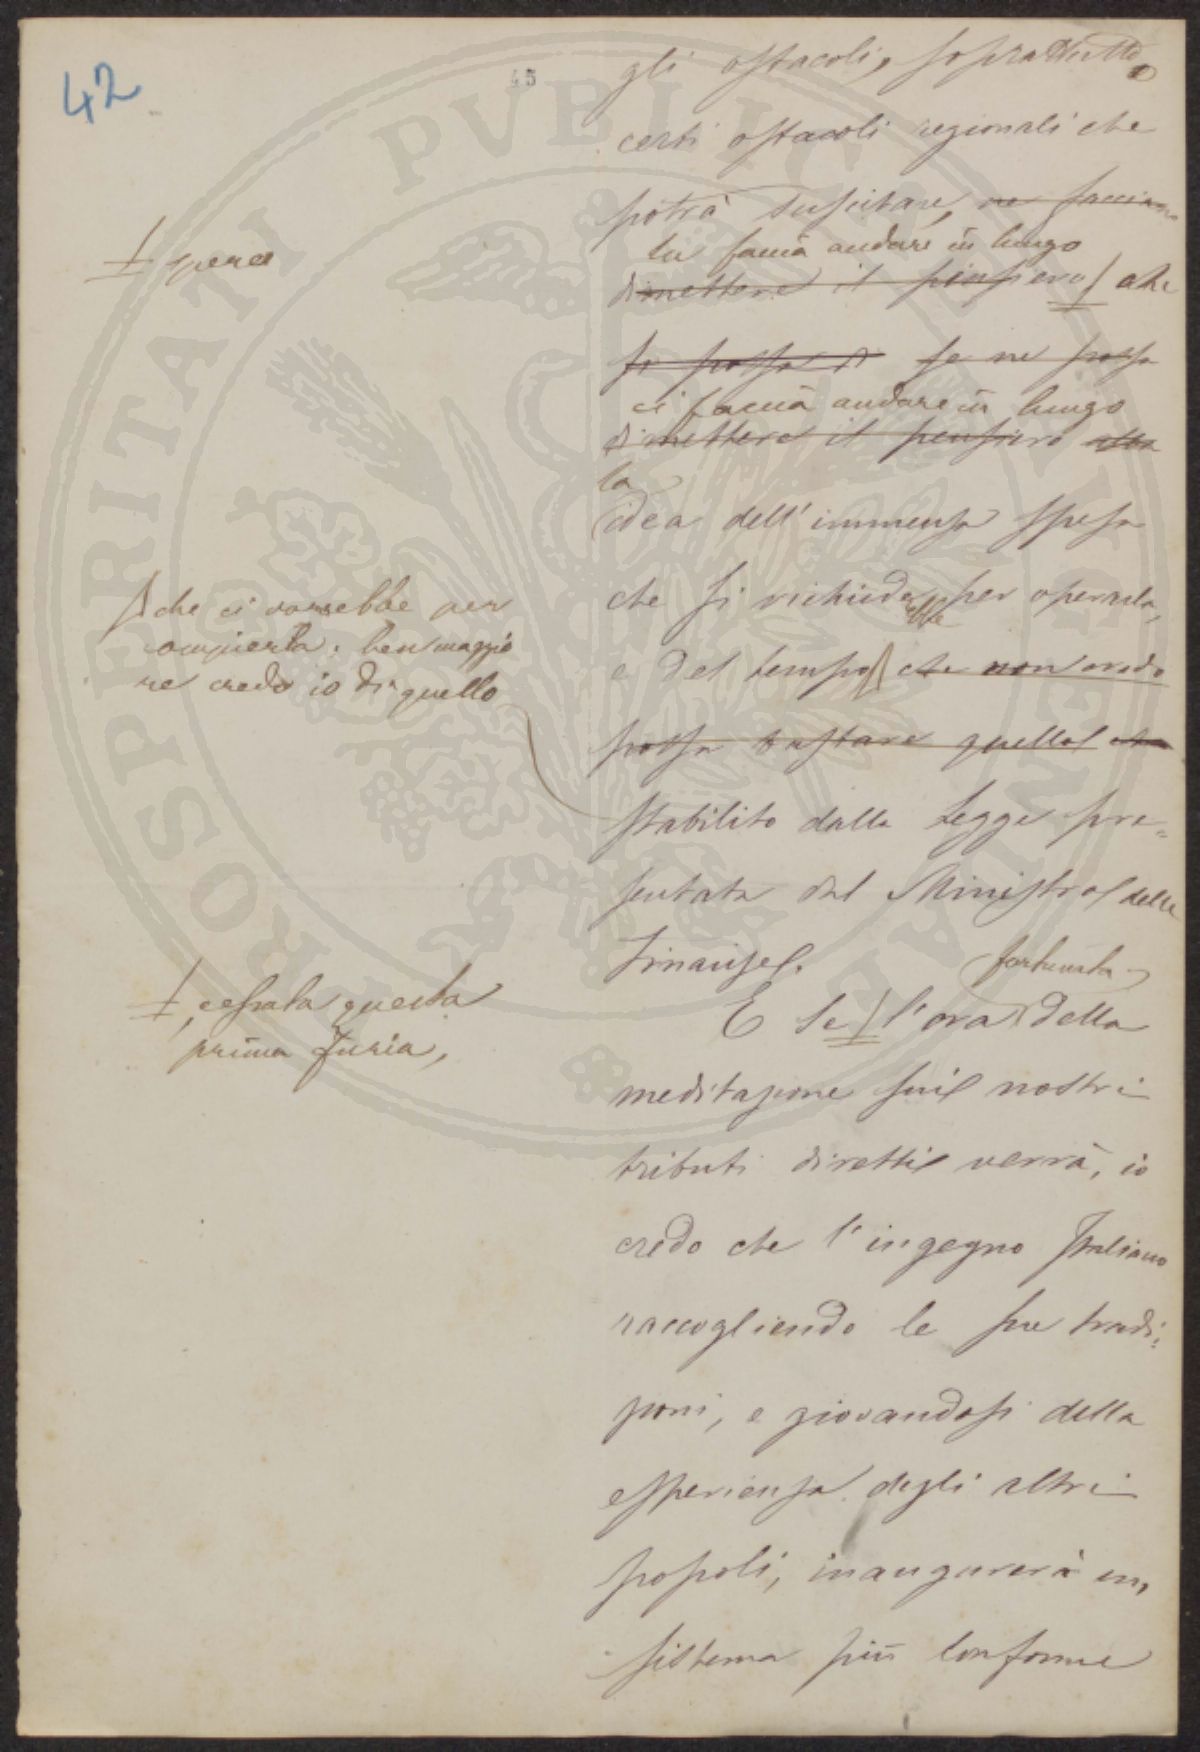 42
45
gli ostacoli, soprattutto
certi ostacoli regionali che
potrà suscitare, ne facciano
la farà andare in lungo
dimettere il pensiero che
si possa di se ne possa
ci farà andare in lungo
dimettere il pensiero
la
idea dell'immensa spesa
che si richiederebbe per operarla,
e del tempo che non credo
possa bastare quello che
stabilito dalla legge pre=
sentata dal Ministro delle
Finanze.
fortunata
E se l'ora della
meditazione sui nostri
tributi diretti verrà, io
credo che l'ingegno Italiano
raccogliendo le sue tradi=
zioni, e giovandosi della
esperienza degli altri
popoli, inaugurerà un
sistema più conforme
pera
che ci vorrebbe per
compierla: ben maggio
re credo io di quello
, cessata questa
prima furia,
PROSPERITATI PVBLICAE